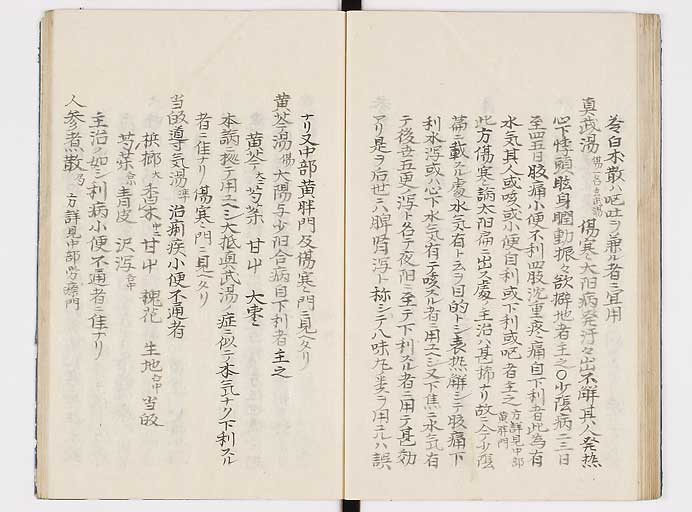 苓白朮散ハ呕吐ヲ兼ル者ニ冝用
真武湯 傷一名玄武湯 傷寒ミ大阳病発汗々出不解其人発热
心下悸頭眩身瞤動振々欲擗地者主之〇少蔭病二三日
至四五日肢痛小便不利四肢沈重疼痛自下利者此為有
水気其人或咳或小便自利或下利或呕者主之 方詳見中部黄胖門
此方傷寒ミ論太阳扁ニ出ス處ノ主治ハ甚措ナリ故ニ今少蔭
篇ニ載スル處水気有ト云ヲ目的トシ表热解シテ肢痛下
利水泻或ハ心下水気有テ咳スル者ニ用ユヘシ又下焦ニ水気有
テ後世五更ノ泻ト名テ夜阳ニ至テ下利スル者ニ用テ甚効
アリ是ヲ后世ニハ脾肾泻ト称シテ八味丸ヲ用ユルハ誤
ナリ又中部黄胖門及傷寒ミ門ニ見ヘタリ
黄芩湯 傷 大陽与少阳合病自下利者主之
黄芩 大 芍薬 甘艹 大棗ミ
本病ニ拠テ用ユヘシ大抵通武湯ノ症ニ似テ本気ナク下利スル
者ニ佳ナリ傷寒ミ門ニ見ヘタリ
当皈導气湯 治痢疾小便不通者
梹榔 大 木香 甘艹 槐花 生地 中 当皈
芍薬 青皮 沢泻
主治ノ如シ利病小便不通者ニ佳ナリ
人参煮散 方詳見中部労瘵門